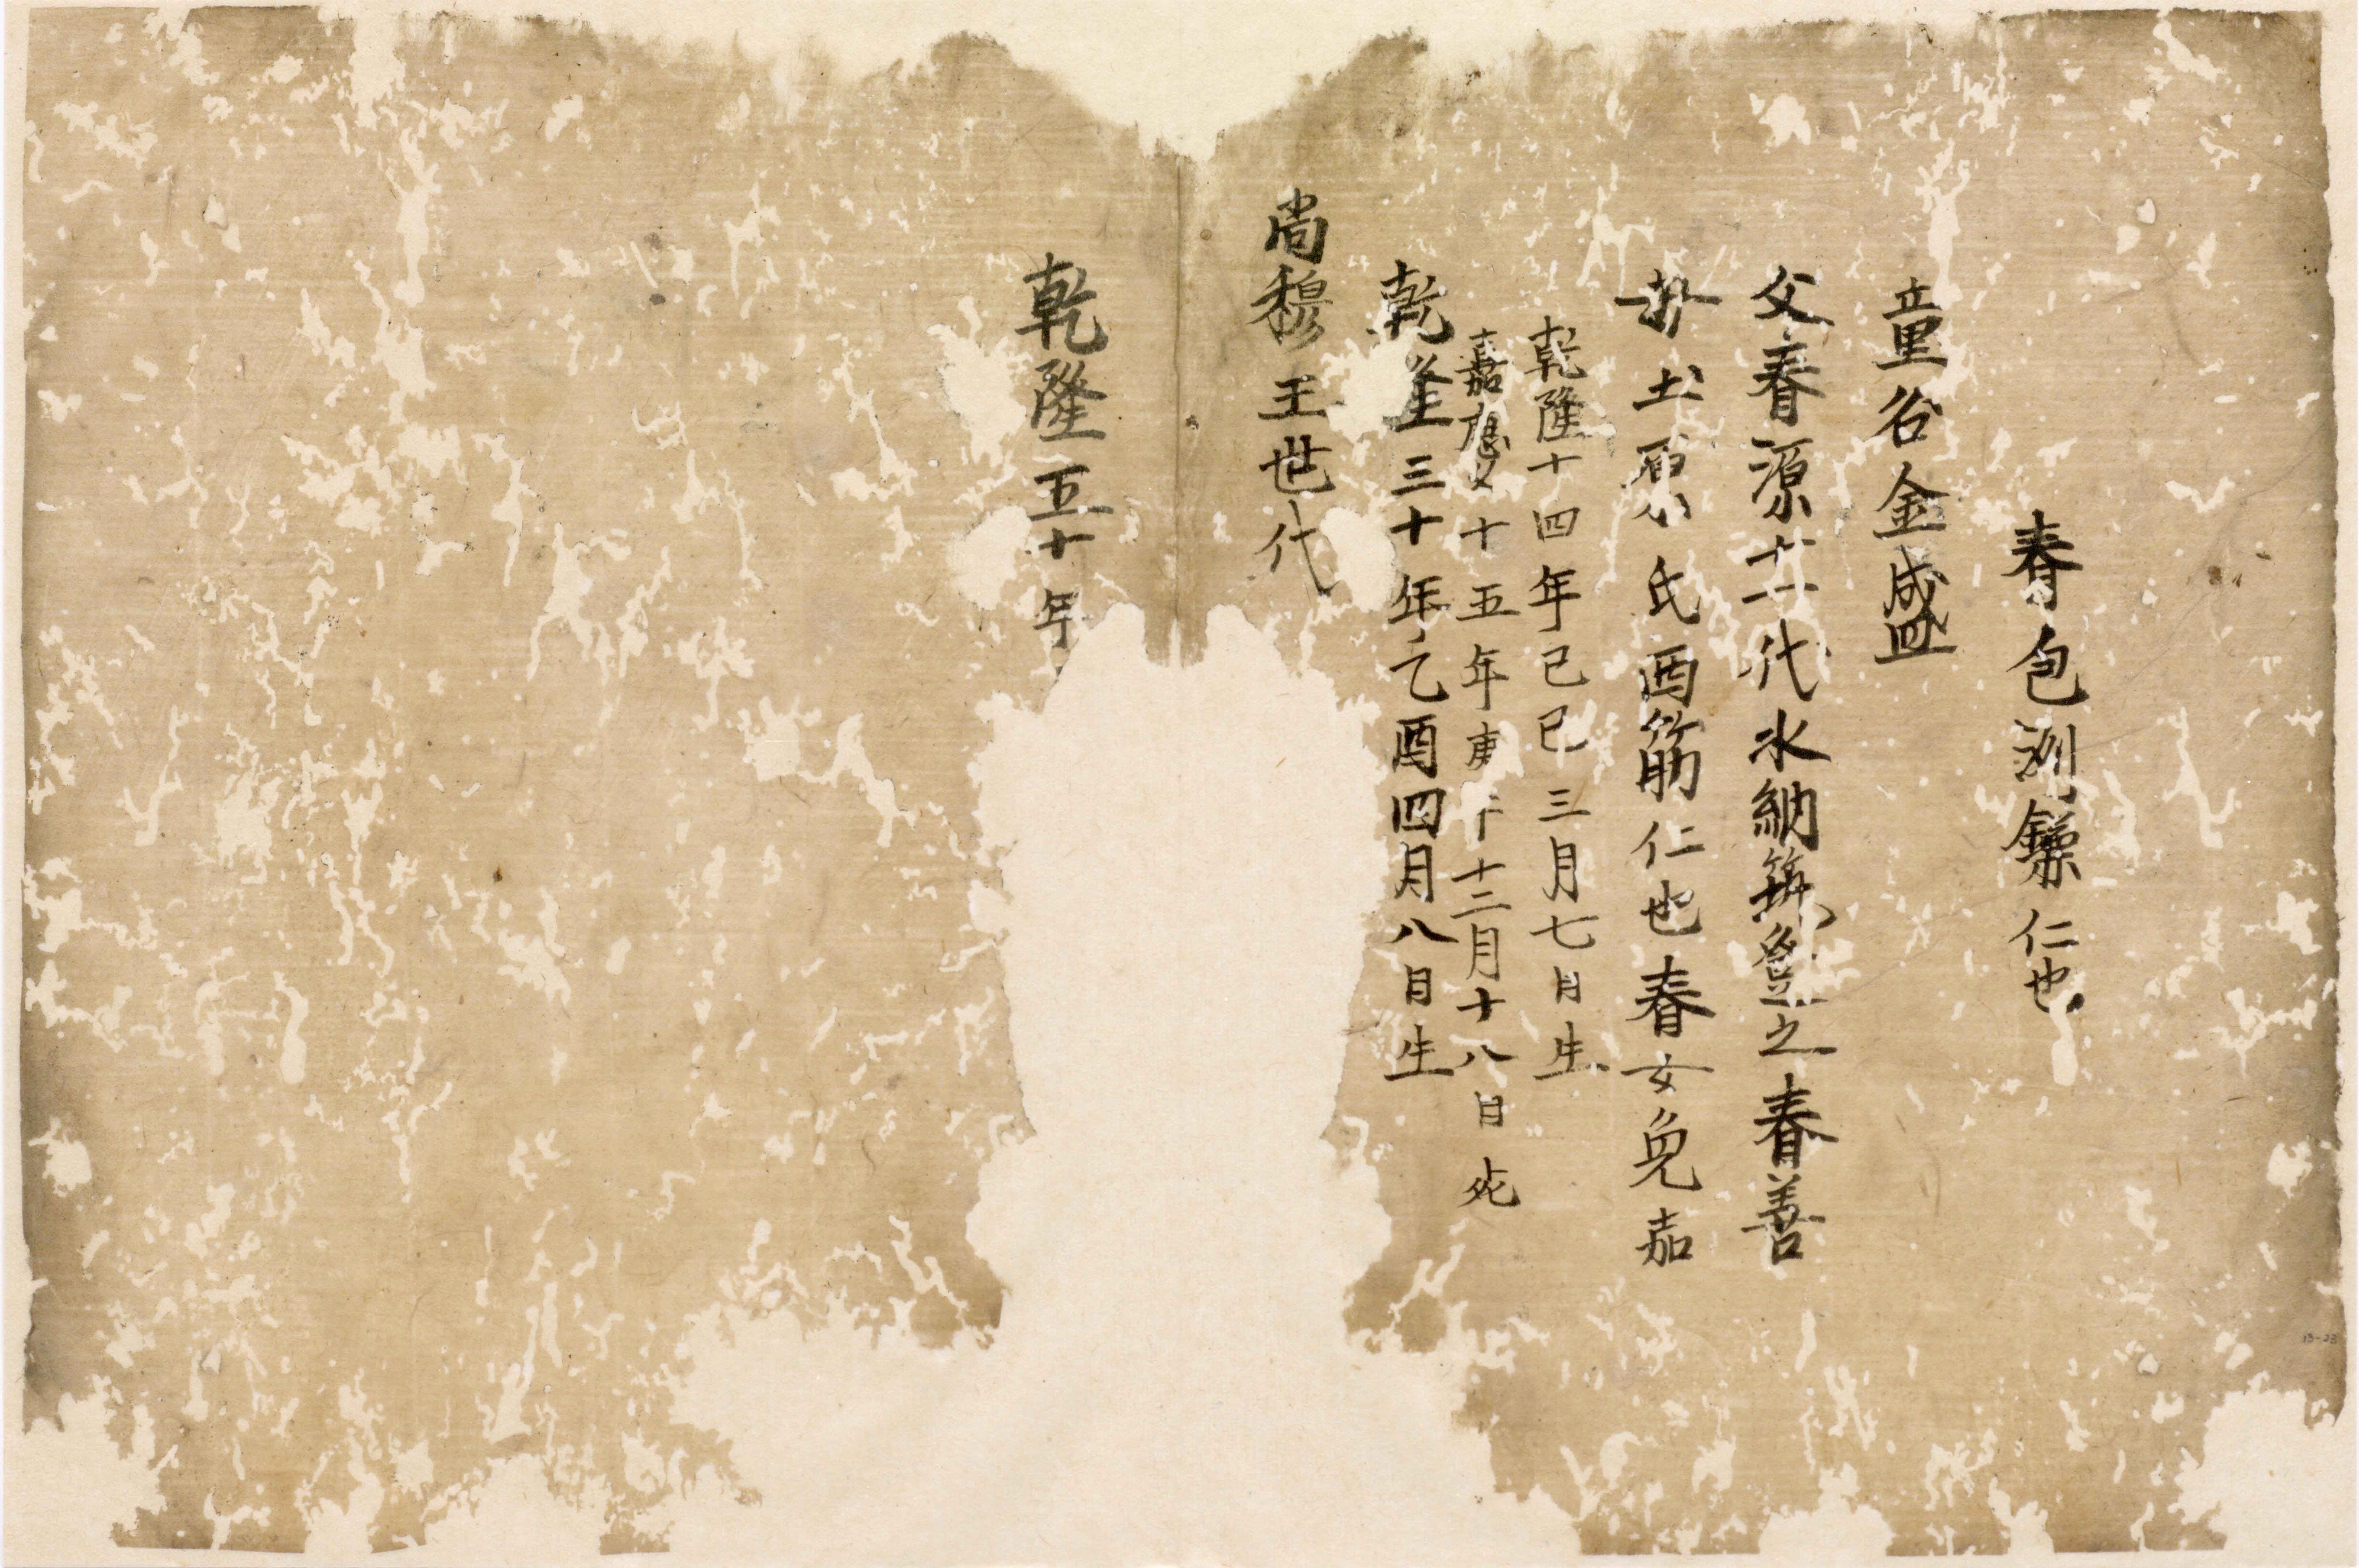 春包洌鑠仁也
童名金盛
父春源廿一代氷納筑登之春善
土原氏酉筋仁也春女免嘉
乾隆十四年己巳三月七日生
嘉慶十五年庚午十二月十八日死
乾隆三十年乙酉四月八日生
尚穆王世代
乾隆五十年